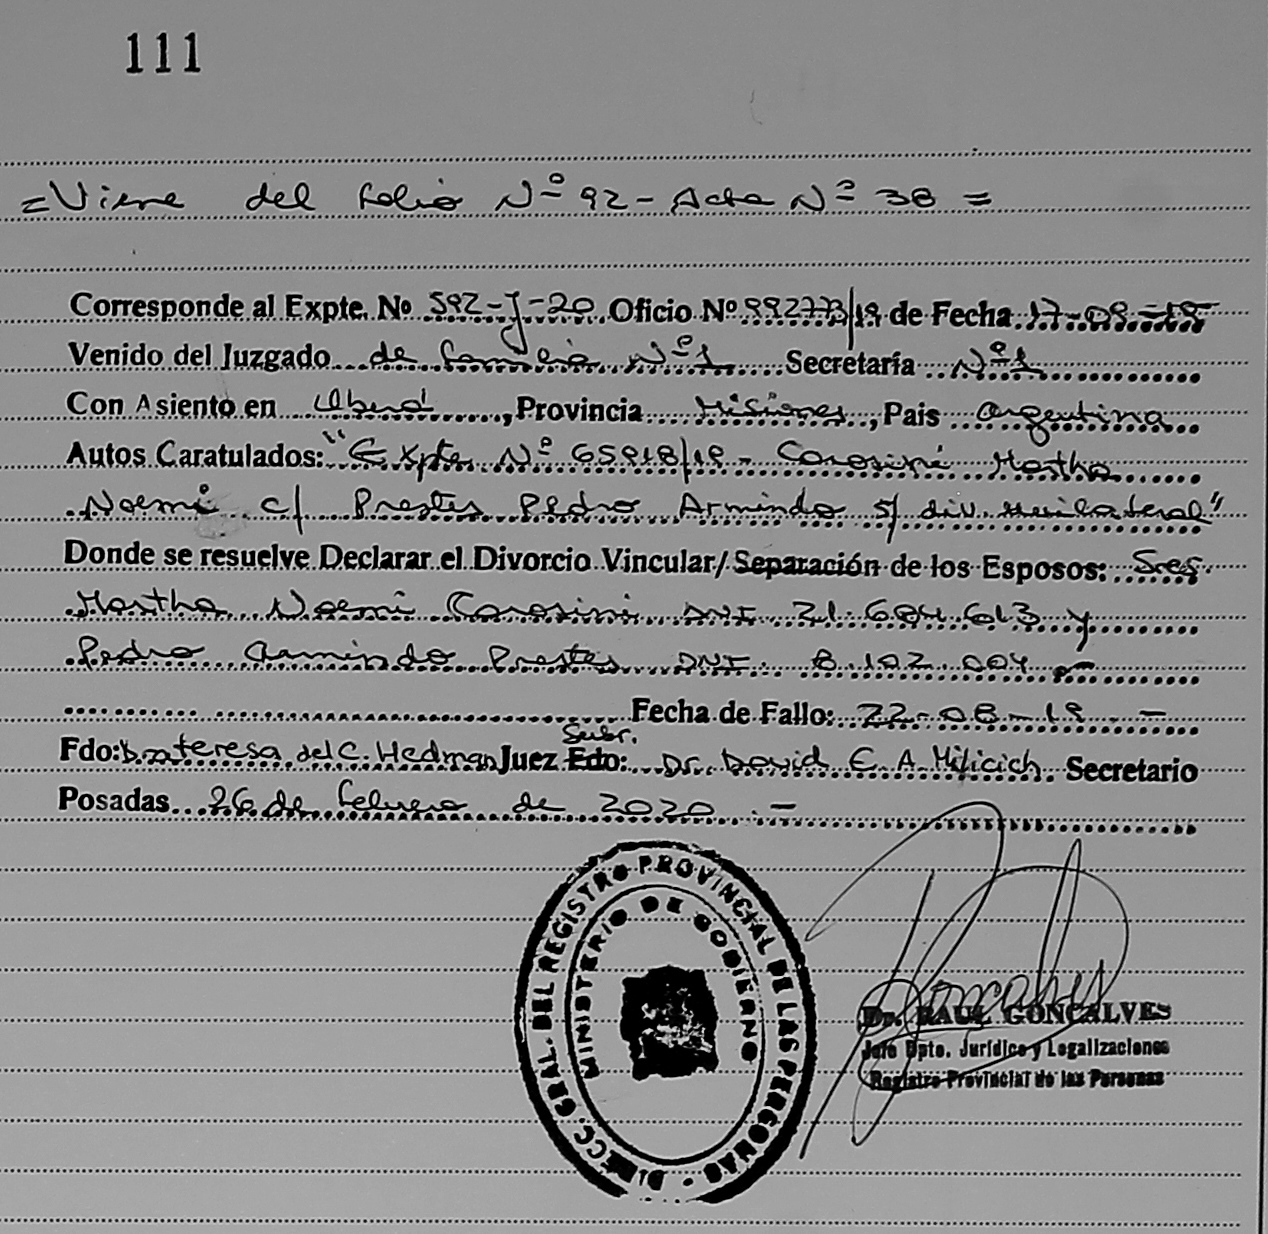 111
=Viene del folio Nº 92- Acta Nº 38 =
Corresponde al Expte. Nº 592-J-20 Oficio Nº 992773/19 de Fecha 17-09-19
Venido del Juzgado de familia Nº1 Secretaría Nº1
Con Asiento en Oberá, Provincia Misiones, Pais Argentina
Autos Caratulados: "Expte Nº 65918/19 - Carosini Martha
Noemi c/ Prestes Pedro Armindo s/ div. unilateral"
Donde se resuelve Declarar el Divorcio Vincular/ Separación de los Esposos: Sres.
Martha Noemi Carosini DNI 21.684.613 y
Pedro Armindo Prestes DNI. 8.102.004
Fecha de Fallo: 22-08-19.-
Subr.
Fdo: Dra Teresa del C. Hedman Juez Fdo: Dr. David E. A. Milicich. Secretario
Posadas 26 de febrero de 2020.-
DIRECC. GRAL. DEL REGISTRO PROVINCIAL DE LAS PERSONAS
MINISTERIO DE GOBIERNO
Dr. RAUL GONCALVES
Jefe Dpto. Jurídico y Legalizaciones
Registro Provincial de las Personas